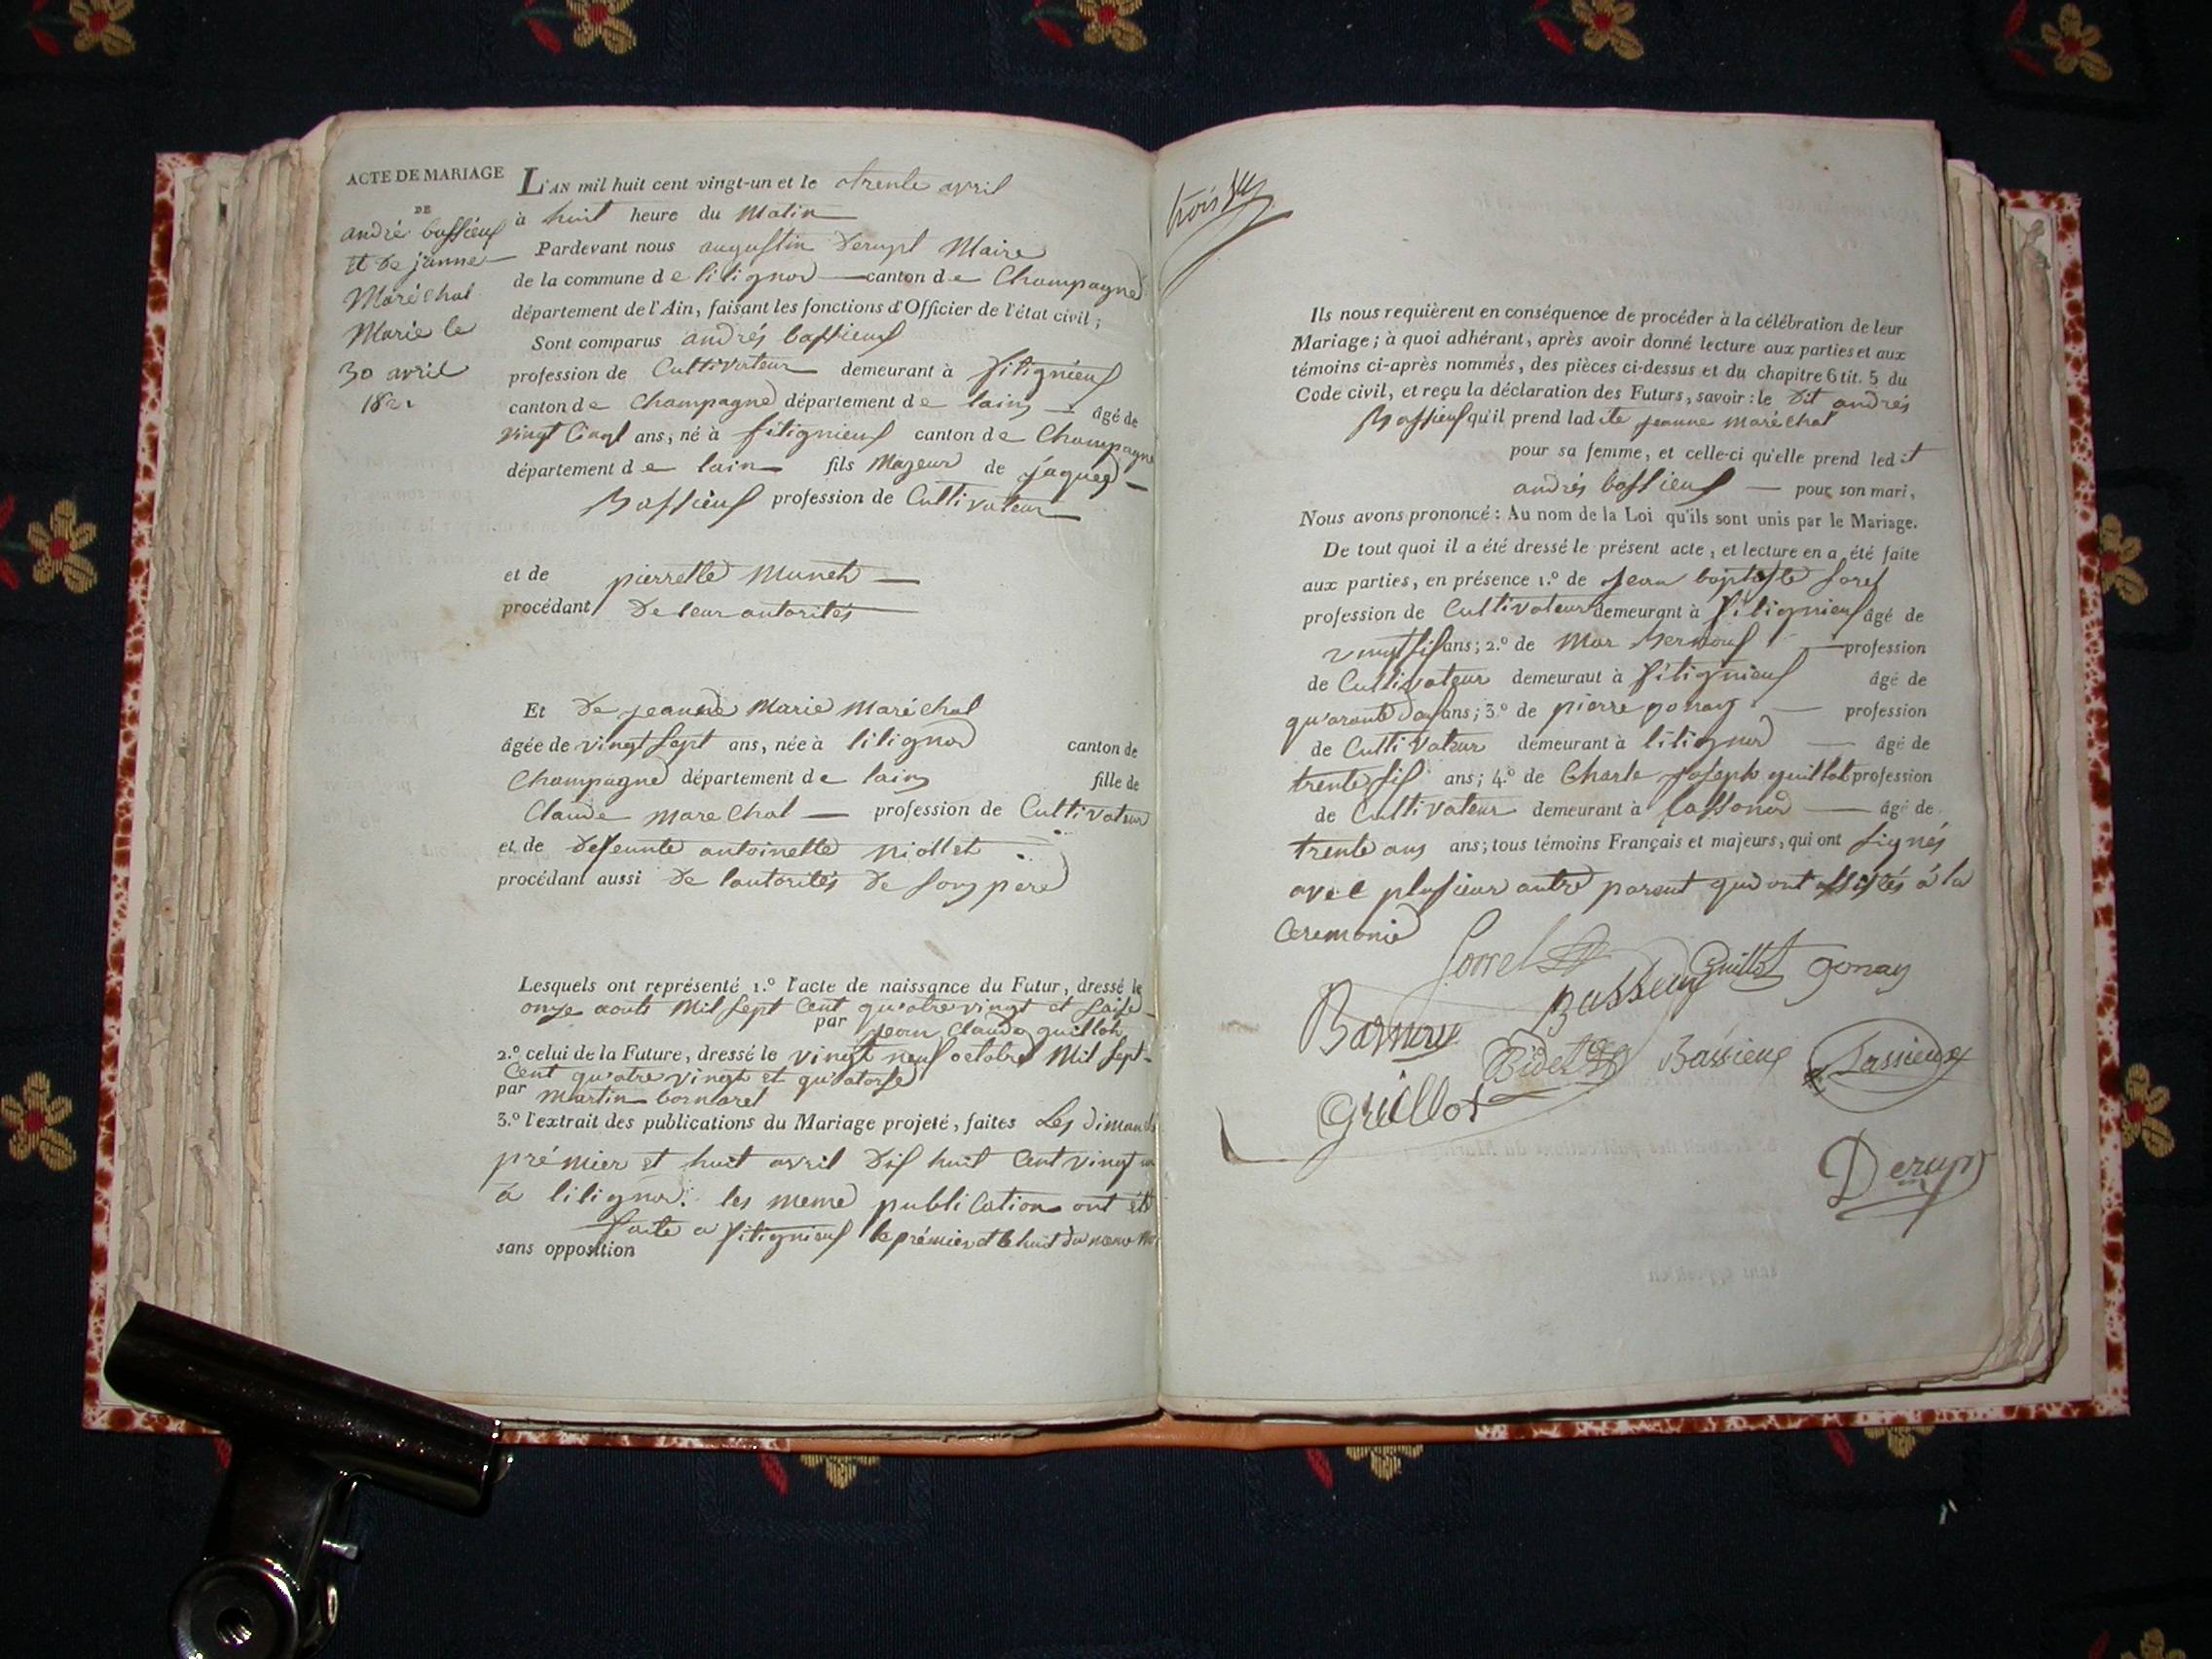 ACTE DE MARIAGE
DE
andré bassieuf
et de janne
Maréchal
Marie le
30 avril
1821
L'AN mil huit cent vingt-un et le trente avril
à huit heure du Matin
Pardevant nous augustin Derupt Maire
de la commune de lilignod canton de Champagne
département de l'Ain, faisant les fonctions d'Officier de l'état civil;
Sont comparus andrés bassieuf
profession de Cultivateur demeurant à fitignieuf
canton de Champagne département de lain âgé de
vingt Cinqt ans, né à fitignieuf canton de Champagne
département de lain fils Majeur de jaques
Bassieuf profession de Cultivateur
et de pierrette Muneh
procédant De leur autorités
Et de jeanne Marie Maréchal
âgée de vingt sept ans, née à lilignod canton de
Champagne département de lain fille de
Claude marechal profession de Cultivateur
et de defeunte antoinette niollet
procédant aussi de lautorités de son pere
Lesquels ont représenté 1.° l'acte de naissance du Futur, dressé le
onze aouts Mil sept Cent quatre vingt et saise
par jean Claude guilloh
2.° celui de la Future, dressé le vingt neuf octobre Mil sept
Cent qu'atre vingt et qu'atorse
par martin bornaret
3.° l'extrait des publications du Mariage projeté, faites Les dimanch
prémier et huit avril Dif huit Cent vingt un
à lilignod. les meme publication ont été
faite a fitignieuf le prémier et le huit du meme
sans opposition
Ils nous requièrent en conséquence de procéder à la célébration de leur
Mariage; à quoi adhérant, après avoir donné lecture aux parties et aux
témoins ci-après nommés, des pièces ci-dessus et du chapitre 6 tit. 5 du
Code civil, et reçu la déclaration des Futurs, savoir: le Dit andrés
Bassieuf qu'il prend ladite jeanne maréchal
pour sa femme, et celle-ci qu'elle prend ledit
andrés bassieuf pour son mari,
Nous avons prononcé: Au nom de la Loi qu'ils sont unis par le Mariage.
De tout quoi il a été dressé le présent acte, et lecture en a été faite
aux parties, en présence 1.° de jean baptiste sorel
profession de Cultivateur demeurant à fitignieuf âgé de
vingt sif ans; 2.° de Mar profession
de Cultivateur demeuraut à fitignieuf âgé de
qu'arante ans; 3.° de pierre gonay profession
de Cultivateur demeurant à lilignod âgé de
trente sif ans; 4.° de Charle joseph guillot profession
de Cultivateur demeurant à lassonod âgé de
trente ans ans; tous témoins Français et majeurs, qui ont signés
avec plusieur autre parent qui ont assistés à la
Ceremonie
Sorrel
Bassieuf
Guillot
gonay
Bidet
Bassieuf
Bassieux
Guillot
Derupt